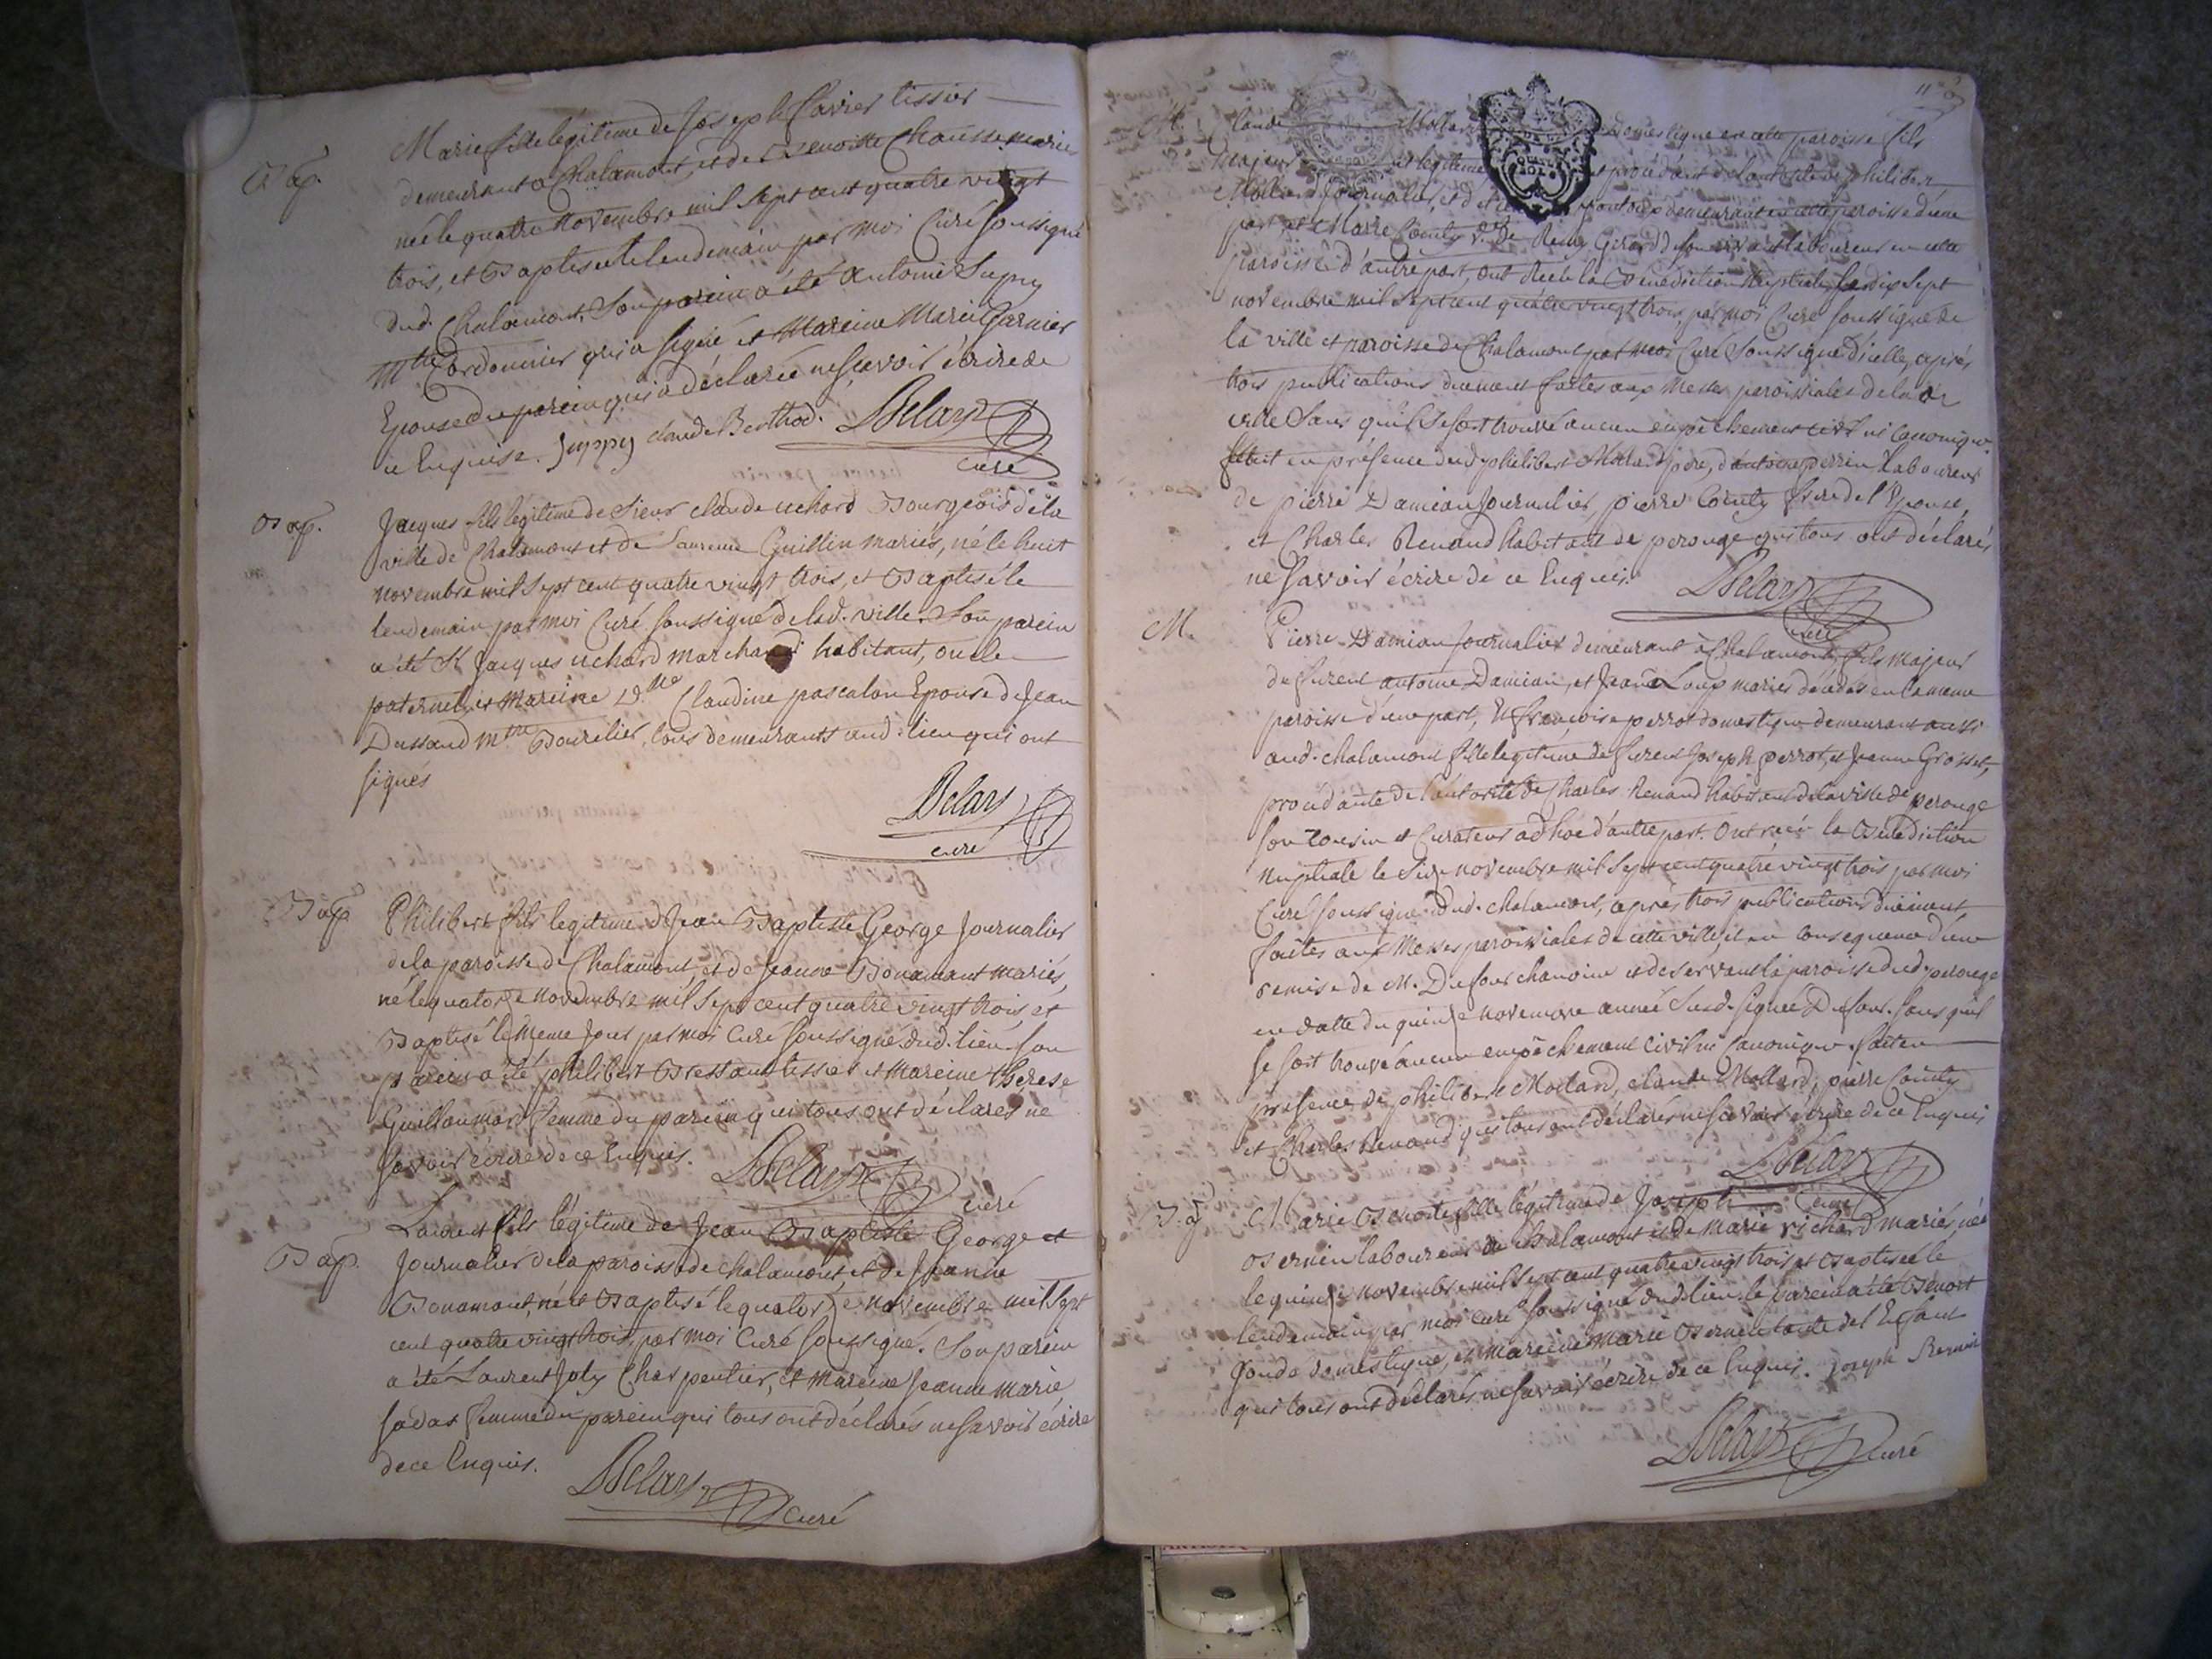 Bap.
Marie fille légitime de Joseph Cavier tissier
demeurant a Chalamont, et de Benoitte Chausse mariés
née le quatre novembre mil sept cent quatre vingt
trois, et Baptisée le lendemain par moi Curé soussigné
dud. Chalamont. Son parein a été antoine Supry
Mtre Cordonnier qui a signé et Mareine Marie Garnier
Epouse du parein qui a déclarée ne scavoir écrire de
ce Enquise. Juppy claude Berthod. Delary
curé
Bap.
Jacques fils légitime de Sieur claude uchard Bourgeois de la
ville de Chalamont et de Laurence Guillin mariés, né le huit
novembre mil sept cent quatre vingt trois, et Baptisé le
lendemain par moi Curé soussigné de lad. ville. Son parein
a été Sr Jacques uchard marchand habitant, oncle
paternel, et Mareine Dlle Claudine pascalon Epouse de Jean
Dussaud mtre Bourelier, tous demeurants aud. lieu qui ont
signés
Delary
curé
Bap
Philibert fils legitime de Jean Baptiste George Journalier
de la paroisse de Chalamont, et de Jeanne Bonamant mariés,
né le quatorze novembre mil sept cent quatre vingt trois, et
Baptisé le meme jour par moi Curé soussigné dud. lieu. son
parein a été philibert tissier et Mareine therese
Guillaumard femme du parein qui tous ont déclarés ne
savoir écrire de ce Enquis.
Delary
curé
Bap.
Laurent fils légitime de Jean Baptiste George et
Journalier de la paroisse de chalamont et de Jeanne
Bonamant, né et Baptisé le quatorze novembre mil sept
cent quatre vingt trois, par moi Curé soussigné. Son parein
a été Laurent Joly Charpentier, et mareine Jeanne marie
femme du parein qui tous ont déclarés ne savoir écrire
de ce Enquis.
Delary curé
M.
Claude Mollard Domestique en cette paroisse fils
Majeur et légitime et procédant de l'autorité de philibert
Mollard Journalier, et d' demeurant en cette paroisse d'une
part, et Marie Comty Vve de Remy Girard de son vivant laboureur en cette
paroisse d'autre part, ont Recu la Benediction Nuptiale le dix sept
novembre mil sept cent quatre vingt trois, par moi Curé soussigné de
la ville et paroisse de Chalamont par moi Curé Soussigné d'icelle, après
trois publications duement faites aux Messes paroissiales de la de
ville Sans qu'il se soit trouvé aucun empêchement civil ni Canonique.
fait en présence dud. philibert Mollard père, d'antoine perrin Laboureur
de pierre Damian Journalier, pierre Comty frere de l'Epouse,
et Charles Renaud habitant de perouge qui tous ont déclarés
ne Savoir écrire de ce Enquis.
Delary
curé
M.
Pierre Damian Journalier demeurant à Chalamont, fils majeur
de furent antoine Damian, et Jeanne Loup mariés décédés en la meme
paroisse d'une part, Et francoise perrot domestique demeurant aussi
aud. chalamont fille legitime de furent Joseph perrot, et Jeanne Grosset,
procédante de l'autorité de Charles Renaud habitant de la ville de perouge
son Cousin et Curateur ad hoc d'autre part. Ont recu la Benediction
Nuptiale le Seize novembre mil sept cent quatre vingt trois par moi
Curé soussigné dud. chalamont, après trois publications duement
faites aux Messes paroissiales de cette ville, et en consequence d'une
remise de M. Dufour chanoine et deservant la paroisse dud. perouge
en datte du quinze novembre année susd. signée Dufour. sans qu'il
se soit trouvé aucun empêchement civil ni Canonique. fait en
présence de philibert Mollard, claude Mollard, pierre Comty
et Charles Renaud qui tous ont déclarés ne scavoir écrire de ce Enquis
Delary
curé
Marie Benoite fille légitime de Joseph
Bernin laboureur de Chalamont et de Marie richard mariés, née
le quinze novembre mil sept cent quatre vingt trois et Baptisée le
lendemain par moi curé soussigné dud. lieu. le parein a été Benoit
domestique, et mareine Marie Bernin tante de l'Enfant
qui tous ont déclarés ne savoir écrire de ce Enquis. joseph Bernin
Delary curé